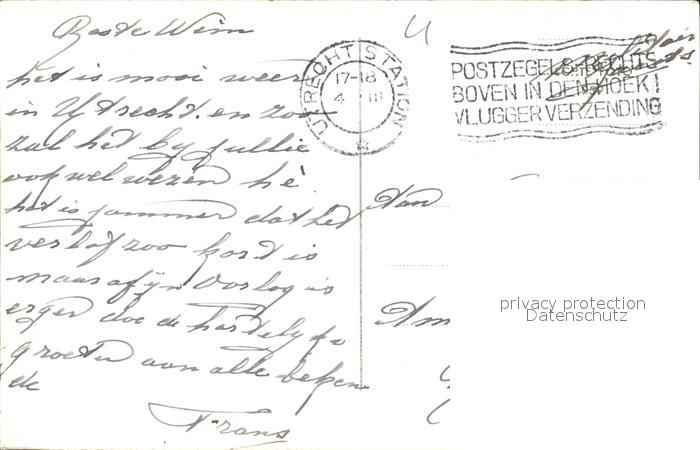 Beste Wim
het is mooi weer
in Utrecht. en zoo
zal het by jullie
ook wel wezen hè
het is jammer dat het
verlof zoo kort is
maar afijn Oorlog is
erger doe de hartelyke
groeten aan alle beken
de
Frans
UTRECHT STATION
17-18
4 III
POSTZEGELS RECHTS
BOVEN IN DEN HOEK!
VLUGGER VERZENDING
Aan
Am
privacy protection
Datenschutz